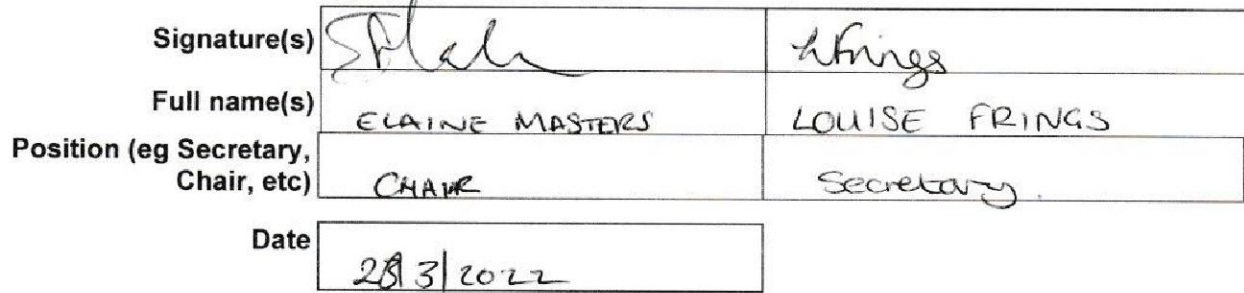 Signature(s) LFrings
Full name(s) ELAINE MASTERS LOUISE FRINGS
Position (eg Secretary,
Chair, etc) CHAIR Secretary.
Date
3/2022